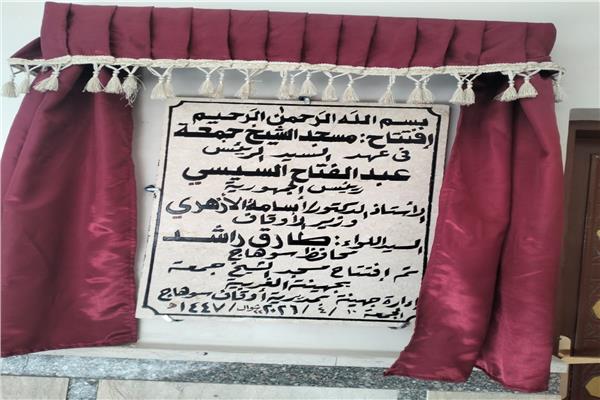 بسم الله الرحمن الرحيم
إفتتاح: مسجد الشيخ جمعة
فى عهد السيد الرئيس
عبد الفتاح السيسي
رئيس الجمهورية
الأستاذ الدكتور/ أسامة الأزهري
وزير الأوقاف
السيد اللواء: طارق راشد
محافظ سوهاج
تم إفتتاح مسجد الشيخ جمعة
بجهينة الغربية
إدارة جهينة بمديرية أوقاف سوهاج
الجمعة ١٠/ ٤/ ٢٠٢٦ / شوال/ ١٤٤٧هـ